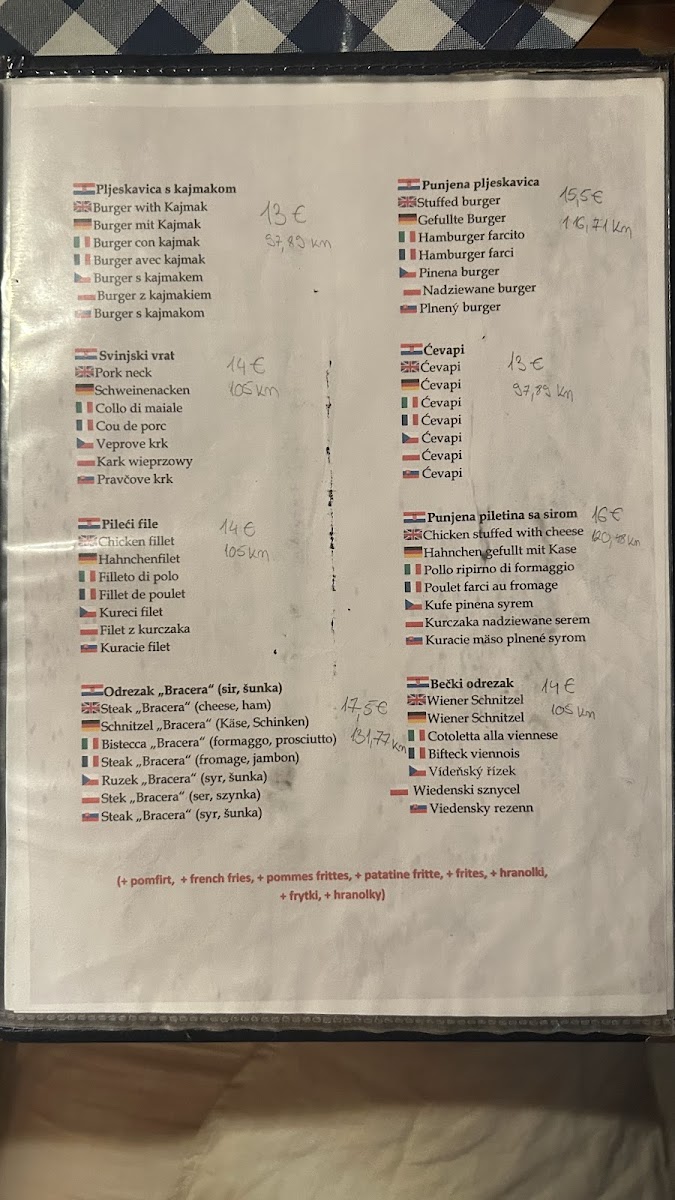 Pljeskavica s kajmakom
Burger with Kajmak
Burger mit Kajmak
Burger con kajmak
Burger avec kajmak
Burger s kajmakem
Burger z kajmakiem
Burger s kajmakom
13 €
97,89 kn
Punjena pljeskavica
Stuffed burger
Gefullte Burger
Hamburger farcito
Hamburger farci
Pinena burger
Nadziewane burger
Plnený burger
15,5 €
116,71 kn
Svinjski vrat
Pork neck
Schweinenacken
Collo di maiale
Cou de porc
Veprove krk
Kark wieprzowy
Pravčove krk
14 €
105 kn
Ćevapi
Ćevapi
Ćevapi
Ćevapi
Ćevapi
Ćevapi
Ćevapi
Ćevapi
13 €
97,89 kn
Pileći file
Chicken fillet
Hahnchenfilet
Filleto di polo
Fillet de poulet
Kureci filet
Filet z kurczaka
Kuracie filet
14 €
105 kn
Punjena piletina sa sirom
Chicken stuffed with cheese
Hahnchen gefullt mit Kase
Pollo ripirno di formaggio
Poulet farci au fromage
Kufe pinena syrem
Kurczaka nadziewane serem
Kuracie mäso plnené syrom
16 €
120,48 kn
Odrezak „Bracera“ (sir, šunka)
Steak „Bracera“ (cheese, ham)
Schnitzel „Bracera“ (Käse, Schinken)
Bistecca „Bracera“ (formaggo, prosciutto)
Steak „Bracera“ (fromage, jambon)
Ruzek „Bracera“ (syr, šunka)
Stek „Bracera“ (ser, szynka)
Steak „Bracera“ (syr, šunka)
17,5 €
131,77 kn
Bečki odrezak
Wiener Schnitzel
Wiener Schnitzel
Cotoletta alla viennese
Bifteck viennois
Vídeňský řízek
Wiedenski sznycel
Viedensky rezenn
14 €
105 kn
(+ pomfirt, + french fries, + pommes frittes, + patatine fritte, + frites, + hranolki,
+ frytki, + hranolky)